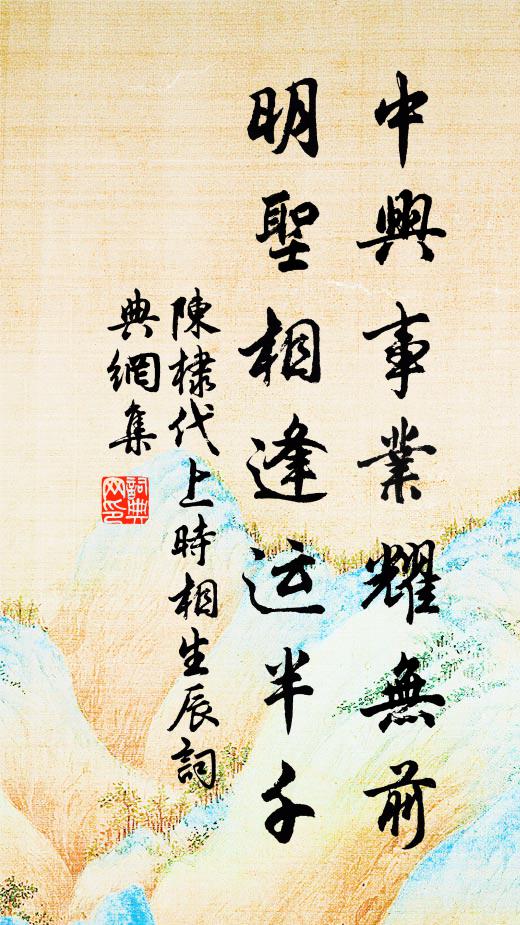 中興事業耀無前
明聖相逢运半千
陳棣代上時相生辰詞
典網集
詞典网印